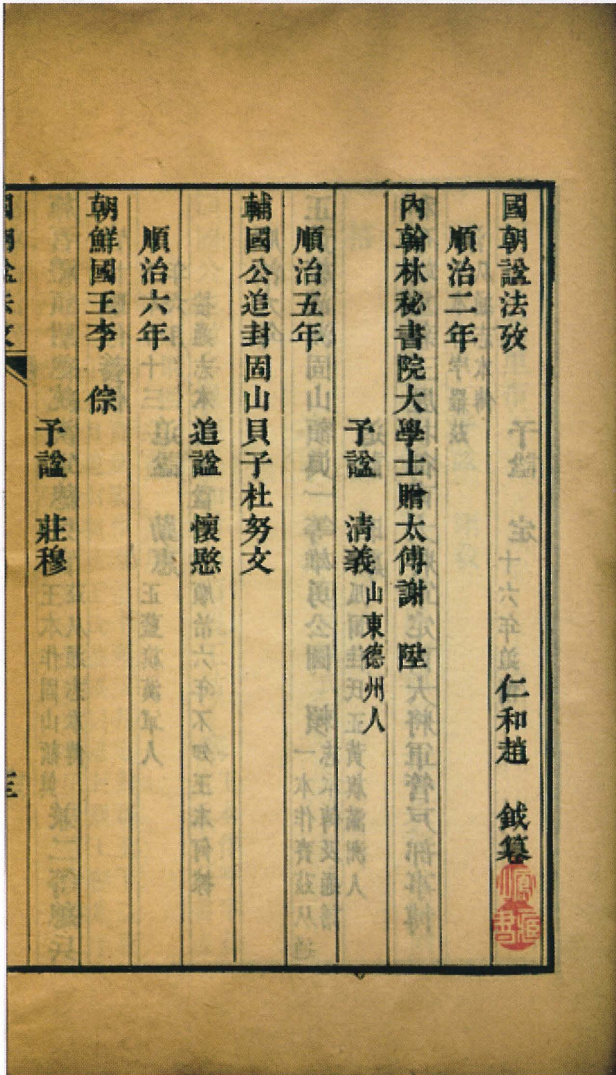 國朝諡法攷 仁和趙 鉞纂
順治二年
內翰林秘書院大學士贈太傅謝 陞
予諡 清義 山東德州人
順治五年
輔國公追封固山貝子杜努文
追諡 懷愍
順治六年
朝鮮國王李 倧
予諡 莊穆
三